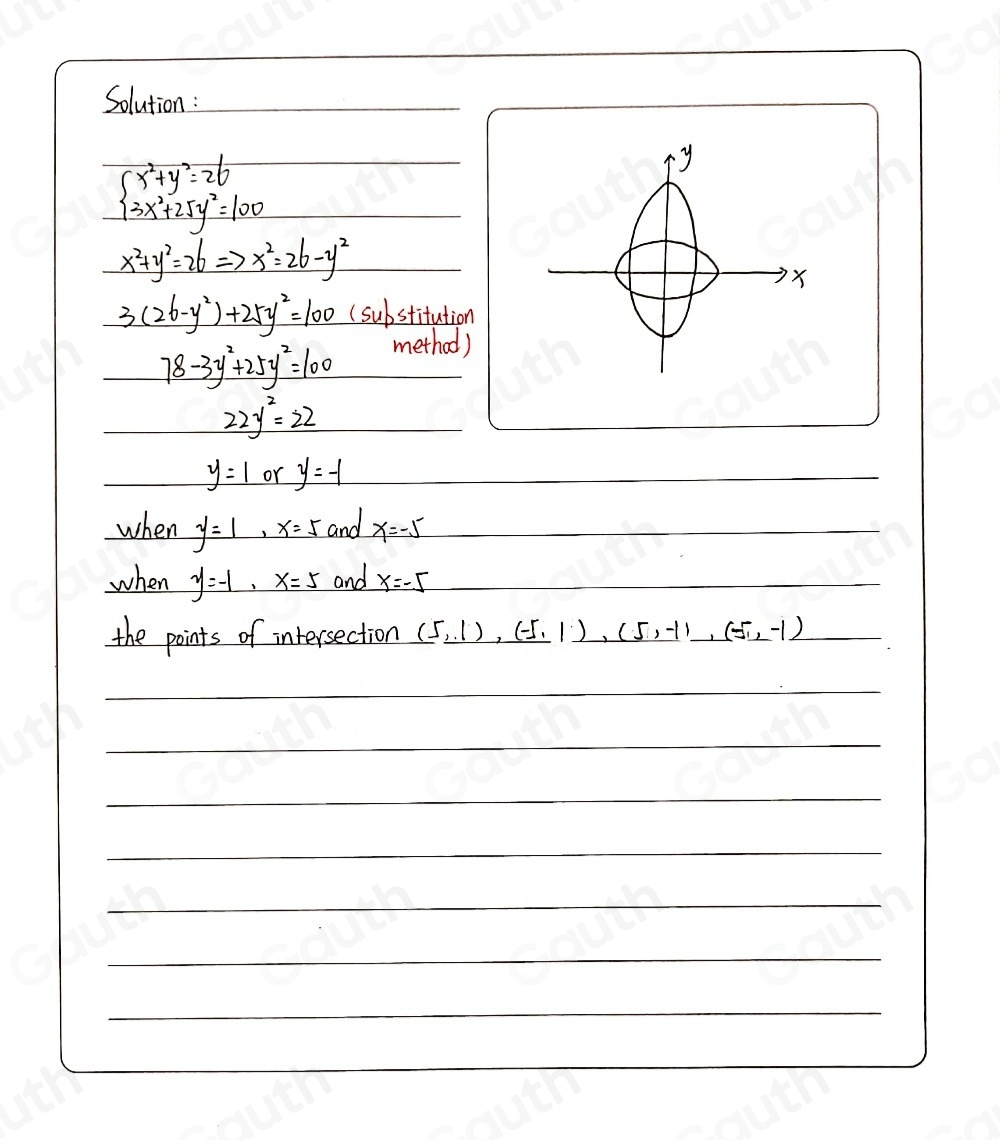 Solution:
x²+y²=26
3x²+25y²=100
x²+y²=26 => x²=26-y²
3(26-y²)+25y²=100 (substitution
method)
78-3y²+25y²=100
22y²=22
y=1 or y=-1
when y=1, x=5 and x=-5
when y=-1, x=5 and x=-5
the points of intersection (5,1), (-5,1), (5,-1), (-5,-1)
y
x
Gauth